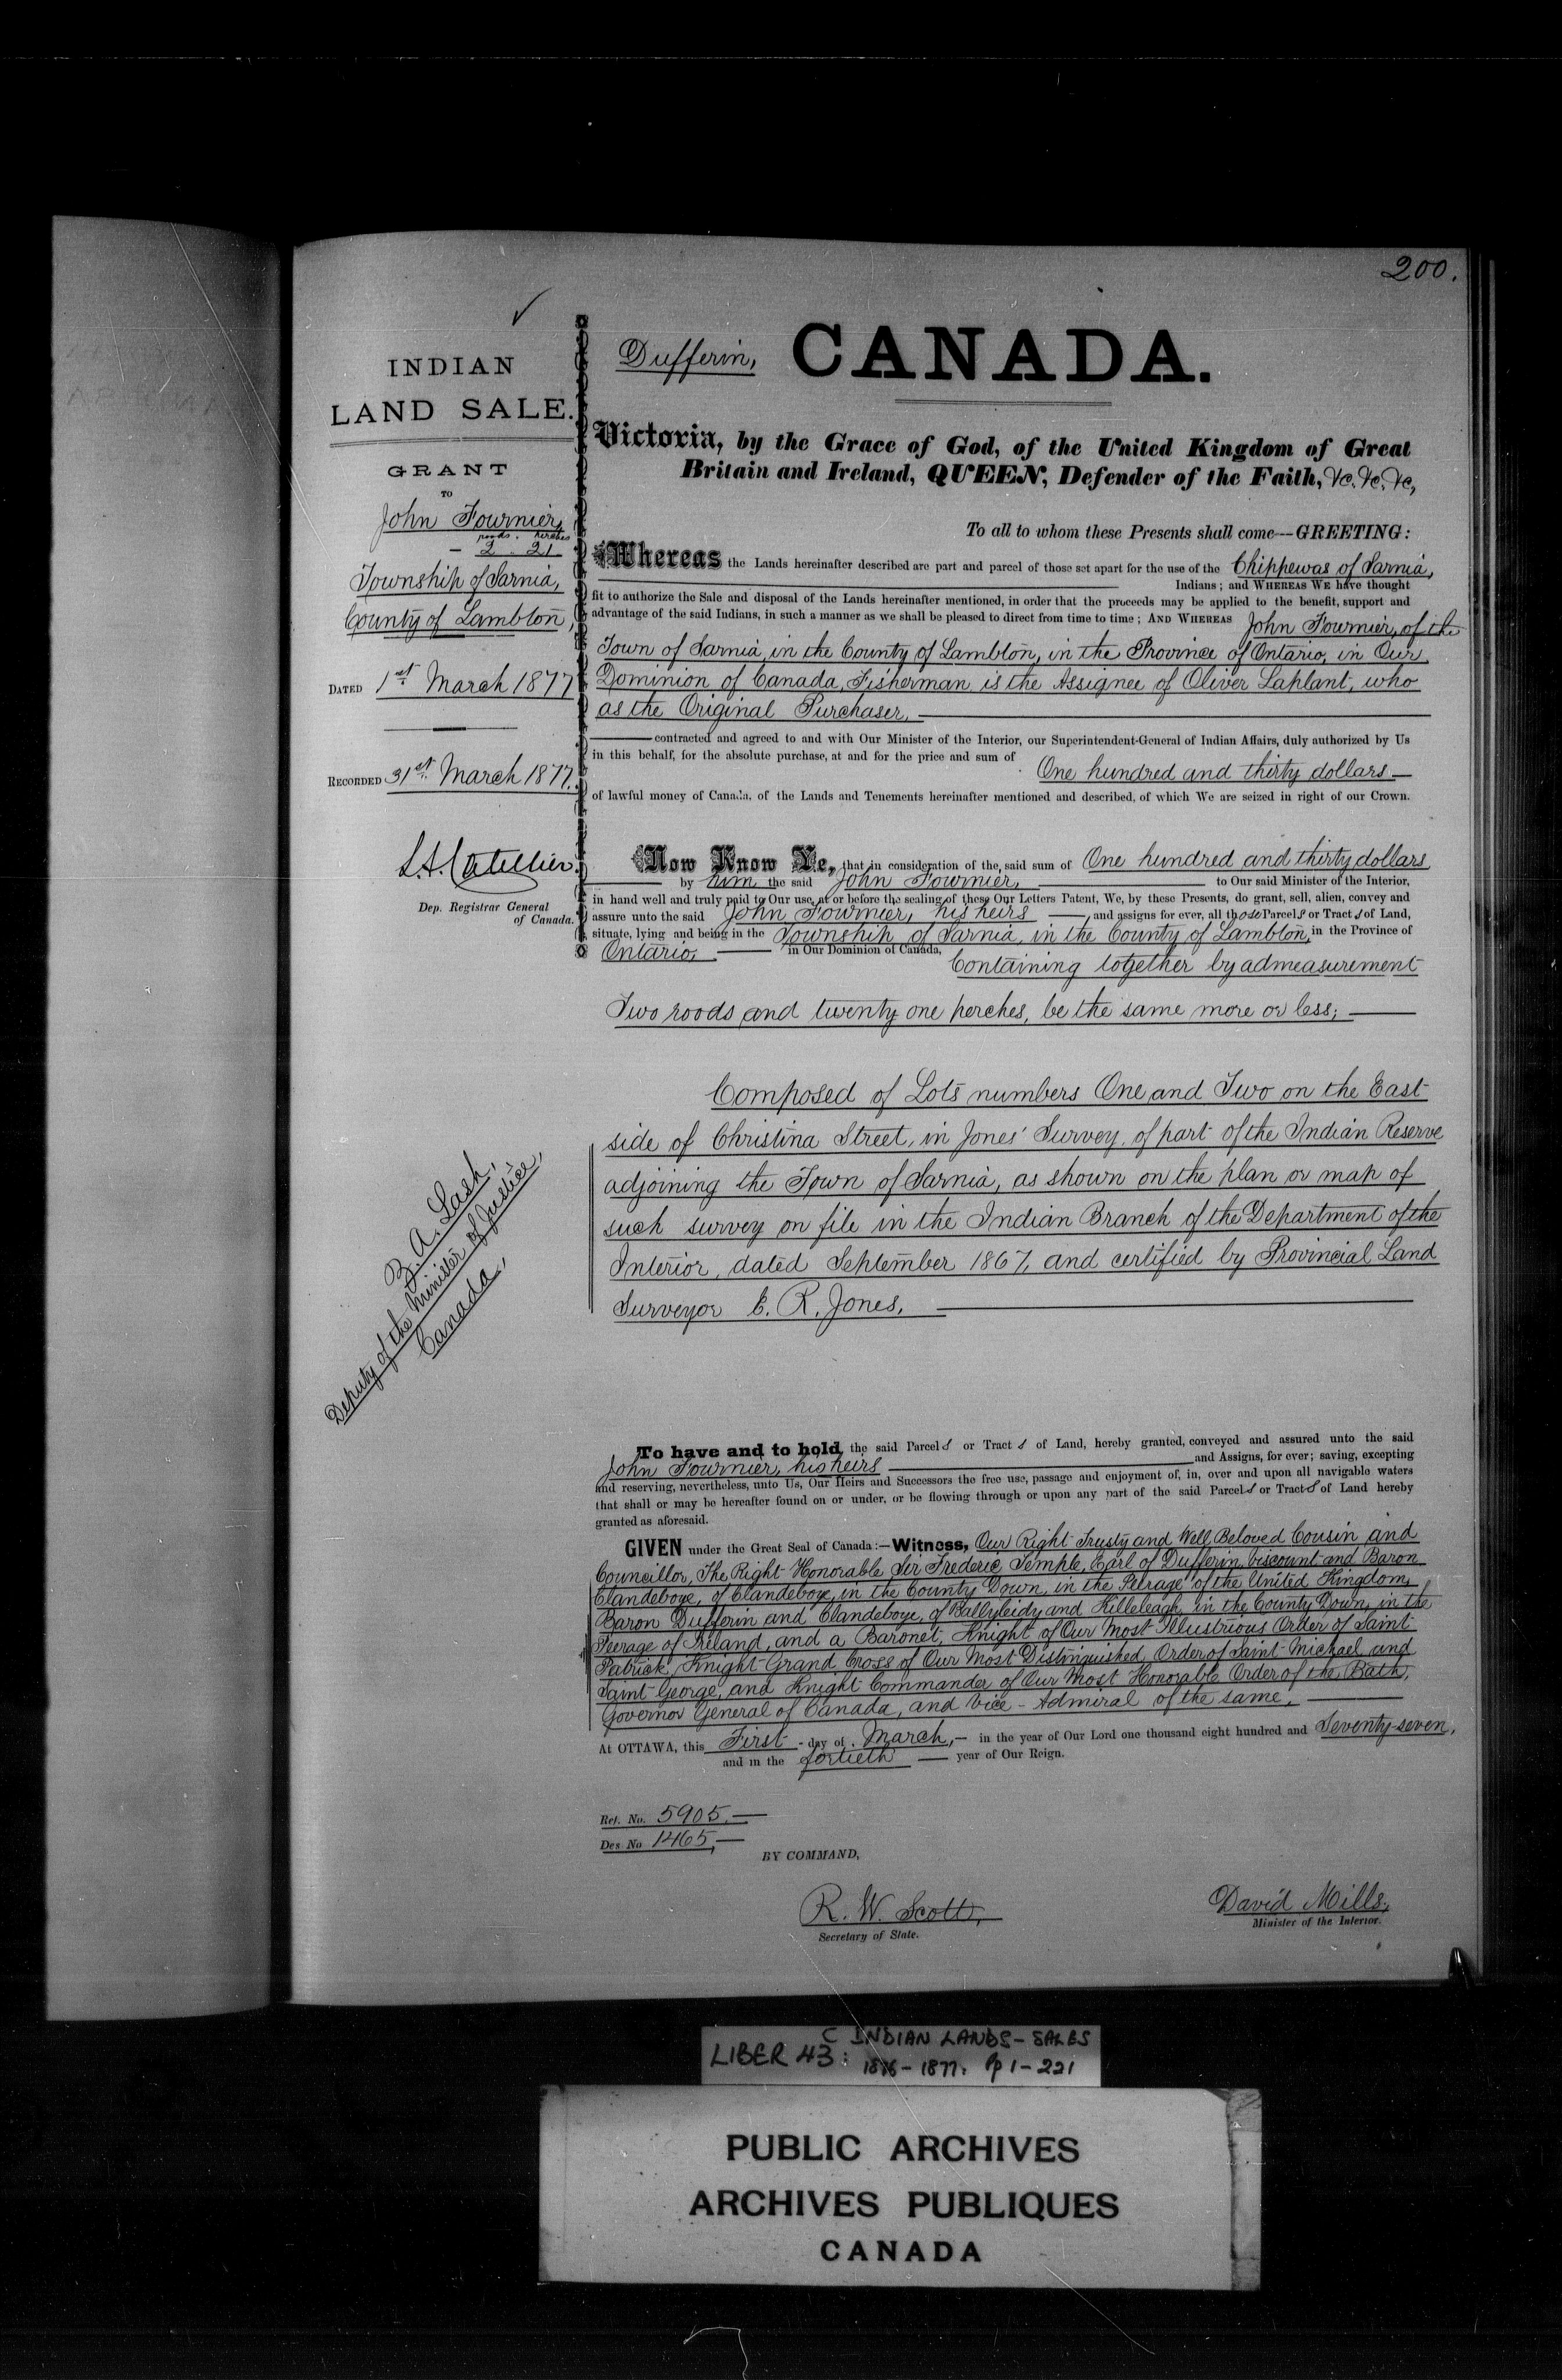 200.
INDIAN
LAND SALE.
GRANT
TO
John Fournier,
roods. perches
- 2 . 21
Township of Sarnia,
County of Lambton,
DATED 1st March 1877
RECORDED 31st March 1877.
Dep. Registrar General
of Canada.
Z. A. Lash,
Deputy of the Minister of Justice,
Canada,
Dufferin, CANADA.
Victoria, by the Grace of God, of the United Kingdom of Great
Britain and Ireland, QUEEN, Defender of the Faith, &c. &c. &c,
To all to whom these Presents shall come—GREETING:
Whereas the Lands hereinafter described are part and parcel of those set apart for the use of the Chippewas of Sarnia,
Indians; and WHEREAS WE have thought
fit to authorize the Sale and disposal of the Lands hereinafter mentioned, in order that the proceeds may be applied to the benefit, support and
advantage of the said Indians, in such a manner as we shall be pleased to direct from time to time; AND WHEREAS John Fournier, of the
Town of Sarnia, in the County of Lambton, in the Province of Ontario, in Our
Dominion of Canada, Fisherman is the Assignee of Oliver Laplant, who
as the Original Purchaser,
contracted and agreed to and with Our Minister of the Interior, our Superintendent-General of Indian Affairs, duly authorized by Us
in this behalf, for the absolute purchase, at and for the price and sum of
One hundred and thirty dollars
of lawful money of Canada, of the Lands and Tenements hereinafter mentioned and described, of which We are seized in right of our Crown.
Now Know Ye, that in consideration of the said sum of One hundred and thirty dollars
by him the said John Fournier, to Our said Minister of the Interior,
in hand well and truly paid to Our use, at or before the sealing of these Our Letters Patent, We, by these Presents, do grant, sell, alien, convey and
assure unto the said John Fournier, his heirs, and assigns for ever, all those Parcels or Tracts of Land,
situate, lying and being in the Township of Sarnia, in the County of Lambton, in the Province of
Ontario, in Our Dominion of Canada, Containing together by admeasurement
Two roods and twenty one perches, be the same more or less;
Composed of Lots numbers One and Two on the East
side of Christina Street, in Jones' Survey, of part of the Indian Reserve
adjoining the Town of Sarnia, as shown on the plan or map of
such survey on file in the Indian Branch of the Department of the
Interior, dated September 1867, and certified by Provincial Land
Surveyor E. R. Jones.
To have and to hold the said Parcels or Tracts of Land, hereby granted, conveyed and assured unto the said
John Fournier, his heirs and Assigns, for ever; saving, excepting
and reserving, nevertheless, unto Us, Our Heirs and Successors the free use, passage and enjoyment of, in, over and upon all navigable waters
that shall or may be hereafter found on or under, or be flowing through or upon any part of the said Parcels or Tracts of Land hereby
granted as aforesaid.
GIVEN under the Great Seal of Canada:—Witness, Our Right Trusty and Well Beloved Cousin and
Councillor, The Right Honorable Sir Frederic Temple, Earl of Dufferin, Viscount and Baron
Clandeboye, of Clandeboye, in the County Down, in the Peerage of the United Kingdom,
Baron Dufferin and Clandeboye, of Ballyleidy and Killeleagh, in the County Down, in the
Peerage of Ireland, and a Baronet, Knight of Our Most Illustrious Order of Saint
Patrick, Knight Grand Cross of Our Most Distinguished Order of Saint Michael and
Saint George, and Knight Commander of Our Most Honorable Order of the Bath,
Governor General of Canada, and Vice-Admiral of the same,
At OTTAWA, this First day of March, in the year of Our Lord one thousand eight hundred and Seventy-seven,
and in the fortieth year of Our Reign.
Ref. No. 5905.
Des No 1465,
BY COMMAND,
R. W. Scott,
Secretary of State.
David Mills,
Minister of the Interior.
LIBER 43: C INDIAN LANDS - SALES
1876 - 1877. pp 1-221
PUBLIC ARCHIVES
ARCHIVES PUBLIQUES
CANADA